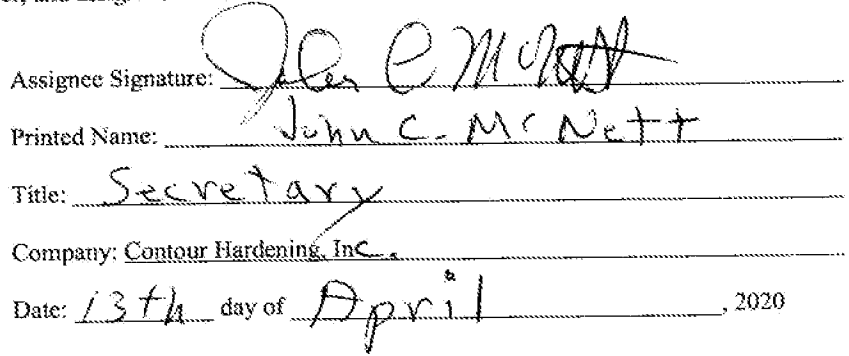 Assignee Signature: John C McNett
Printed Name: John C. McNett
Title: Secretary
Company: Contour Hardening, Inc.
Date: 13th day of April, 2020